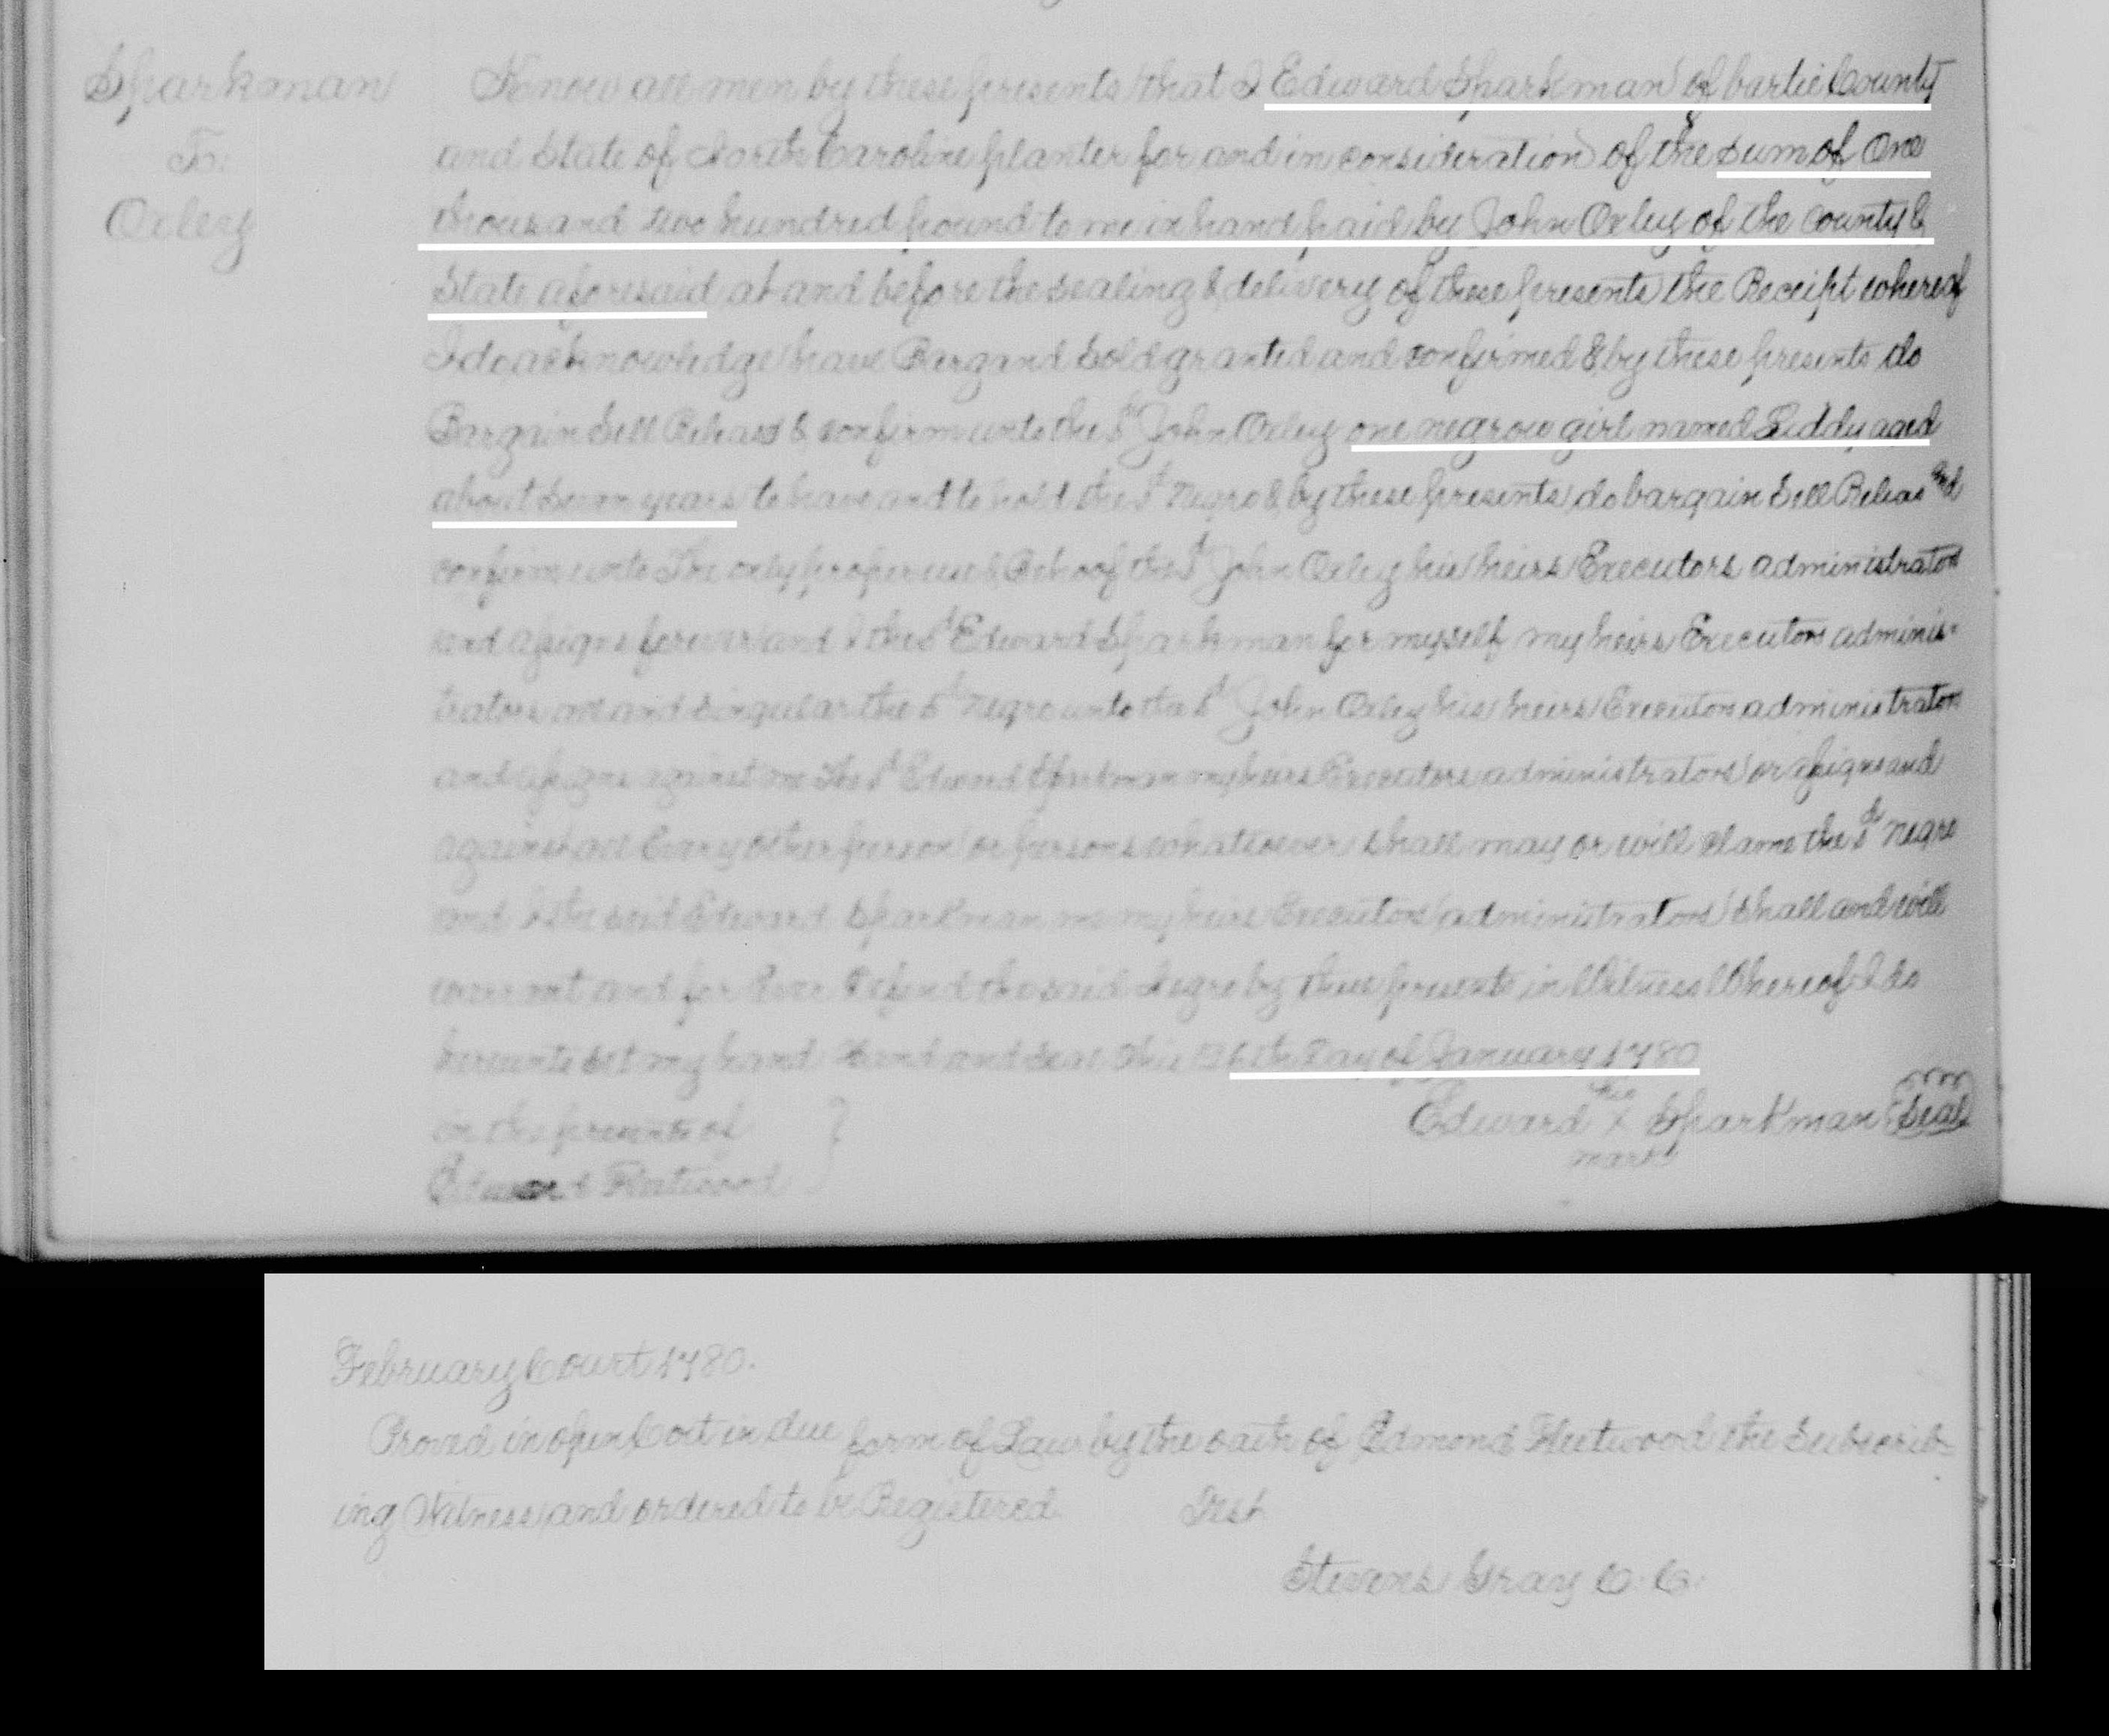 Sparkman
To:
Oxley
Know all men by these presents that I Edward Sparkman of bartie County
and State of North Caroline planter for and in consideration of the sum of One
thousand two hundred pound to me in hand paid by John Oxley of the County &
State aforesaid at and before the sealing & delivery of these presents the Receipt whereof
I do acknowledge have Bargand Sold granted and confirmed & by these presents do
Bargain Sell Releas & confirm unto the sd John Oxley one negrow girl named Liddy aged
about Sevan years to have and to hold the sd Negro & by these presents do bargain Sell Releas and
confirm unto The only proper use & Behoof the sd John Oxley his heirs Executors administrators
and assigns forever and I the sd Edward Sparkman for myself my heirs Executors adminis-
trators all and singular the sd negro unto the sd John Oxley his heirs Executors administrators
and assigns against me the sd Edward Sparkman my heirs Executors administrators or assigns and
against all Every other person or persons whatsoever shall may or will clame the sd Negro
and I the said Edward Sparkman me my heirs Executors administrators shall and will
warrant and for Ever Defend the said negro by these presents in Witness Whereof I do
hereunto set my hand Hand and Seal this Day of January 1780
in the presents of
Edward his X mark Sparkman Seal
Fleetwood
February Court 1780.
Proved in open Cort in due form of Law by the oath of Edmond Fleetwood the Subscrib-
ing Witness and ordered to be Registered Test
Stevens Gray C. C.